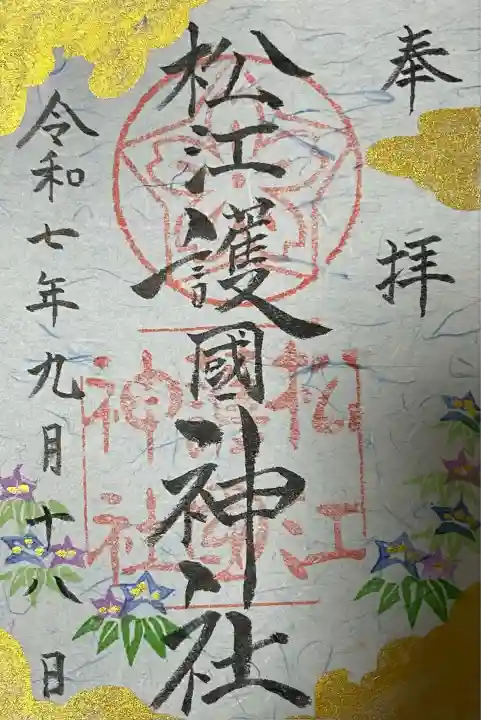 奉拝
松江護國神社
松江護國神社
令和七年九月十八日